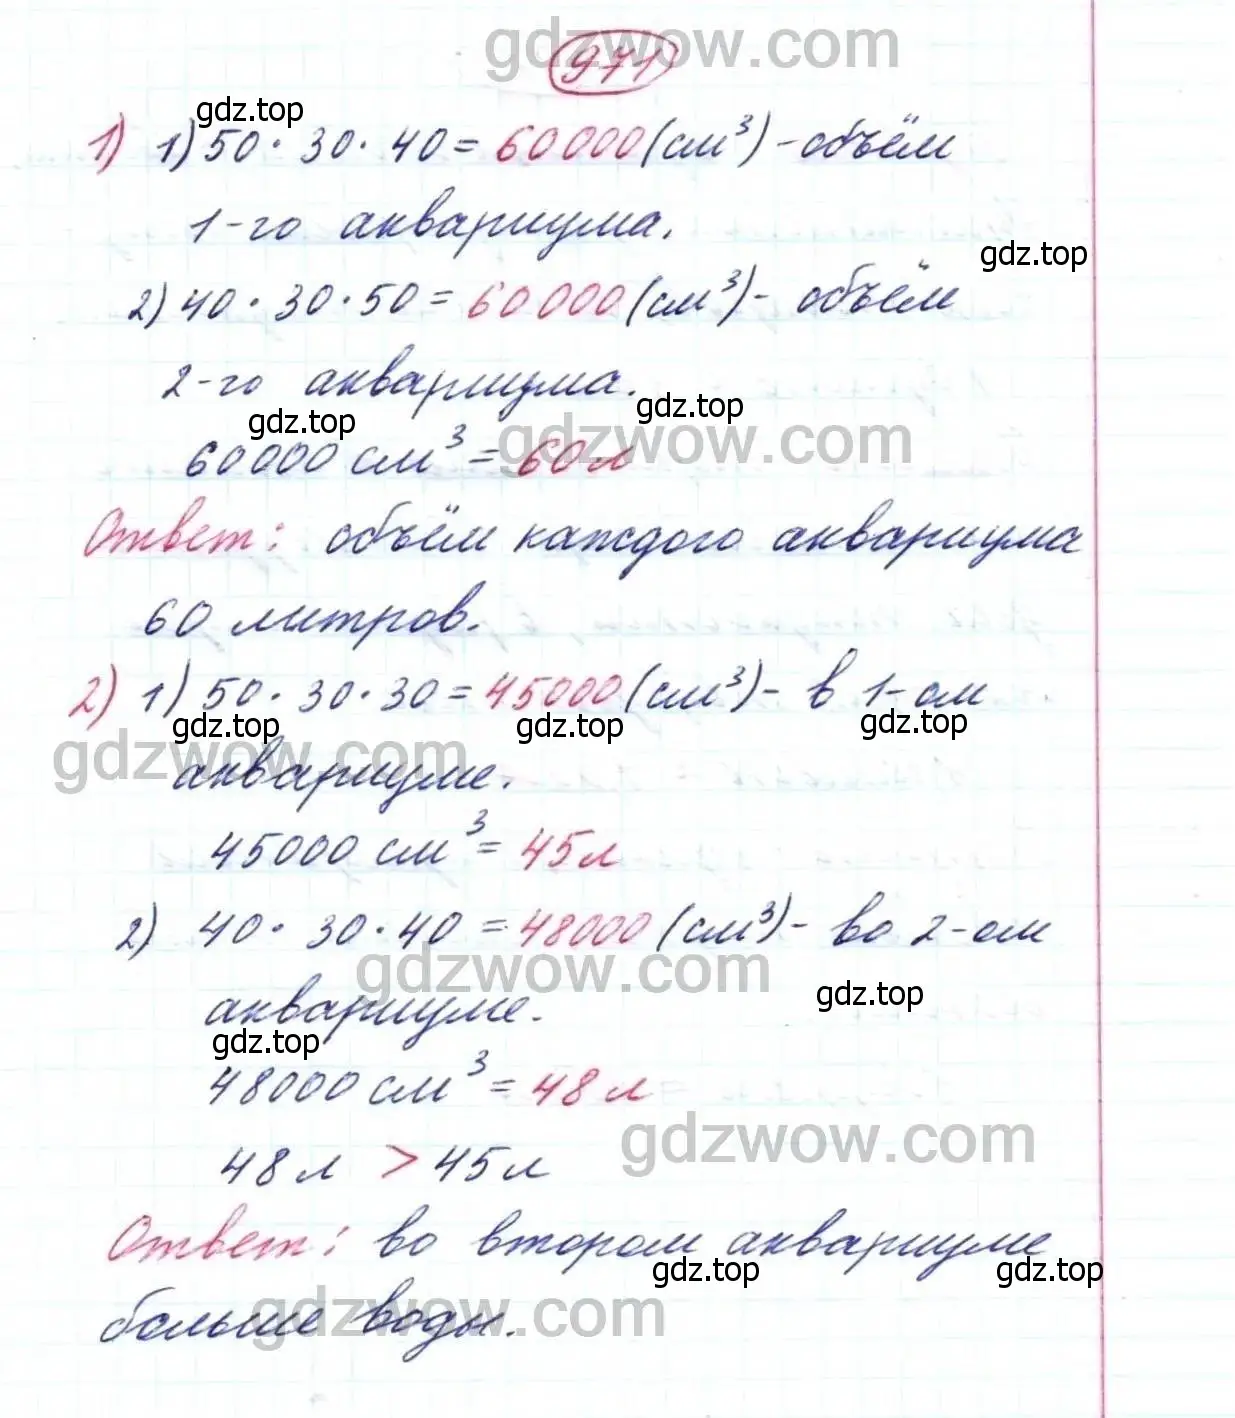 gdzwow.com
971
gdz.top
1) 1) 50 · 30 · 40 = 60000 (см³) - объём
1-го аквариума.
gdz.top
2) 40 · 30 · 50 = 60000 (см³) - объём
2-го аквариума.
gdz.top
gdz.top
gdzwow.com
60000 см³ = 60 л
Ответ: объём каждого аквариума
60 литров.
2) 1) 50 · 30 · 30 = 45000 (см³) - в 1-ом
gdz.top gdz.top gdz.top
gdzwow.com
аквариуме.
45000 см³ = 45 л
2) 40 · 30 · 40 = 48000 (см³) - во 2-ом
gdzwow.com
gdz.top
аквариуме.
gdz.top
48000 см³ = 48 л
gdzwow.com
48 л > 45 л
Ответ: во втором аквариуме
gdz.top gdz.top
gdzwow.com
больше воды.